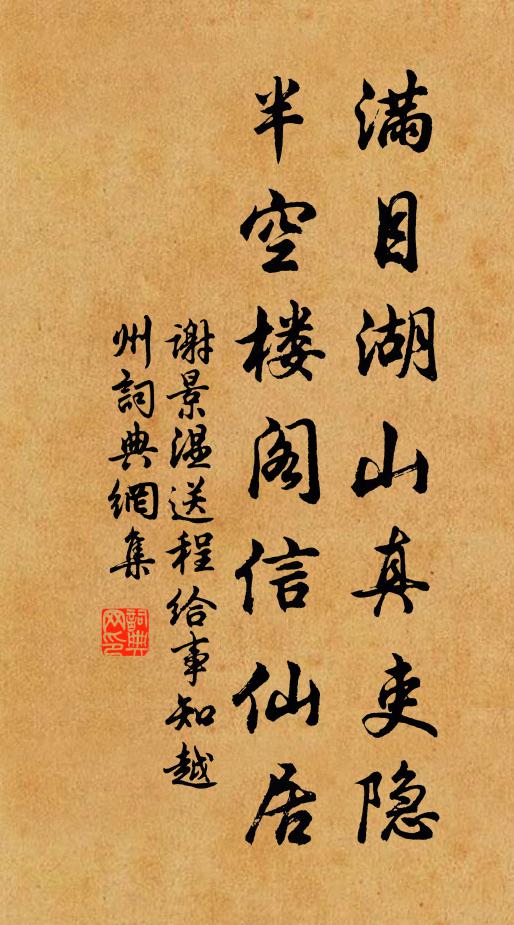 满目湖山真吏隐
半空楼阁信仙居
谢景温送程给事知越
州词典網集
詞典網印